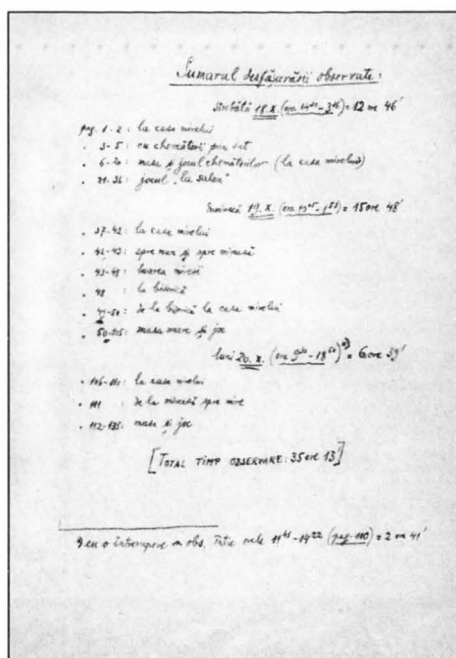 Sumarul desfășurării observate:
sâmbătă 18.X. (ora - 3) = 12 ore 46'
pag. 1-2: la casa mirelui
3-5: cu chemătorii prin sat
6-20: masa și jocul chemătorilor (la casa mirelui)
21-36: jocul „la salon"
Duminică 19.X. (ora - 1) = 15 ore 48'
37-42: la casa mirelui
42-43: spre nun și spre mireasă
43-48: luarea miresei
48: la biserică
49-50: de la biserică la casa mirelui
50-105: masa mare și joc
luni 20.X. (ora - 18) = 6 ore 39'
106-110: la casa mirelui
111: de la mireasă spre mire
112-135: masa și joc
[TOTAL TIMP OBSERVARE: 35 ore 13']
cu o întrerupere în obs. între orele 11⁴¹-14²² (pag. 110) = 2 ore 41'